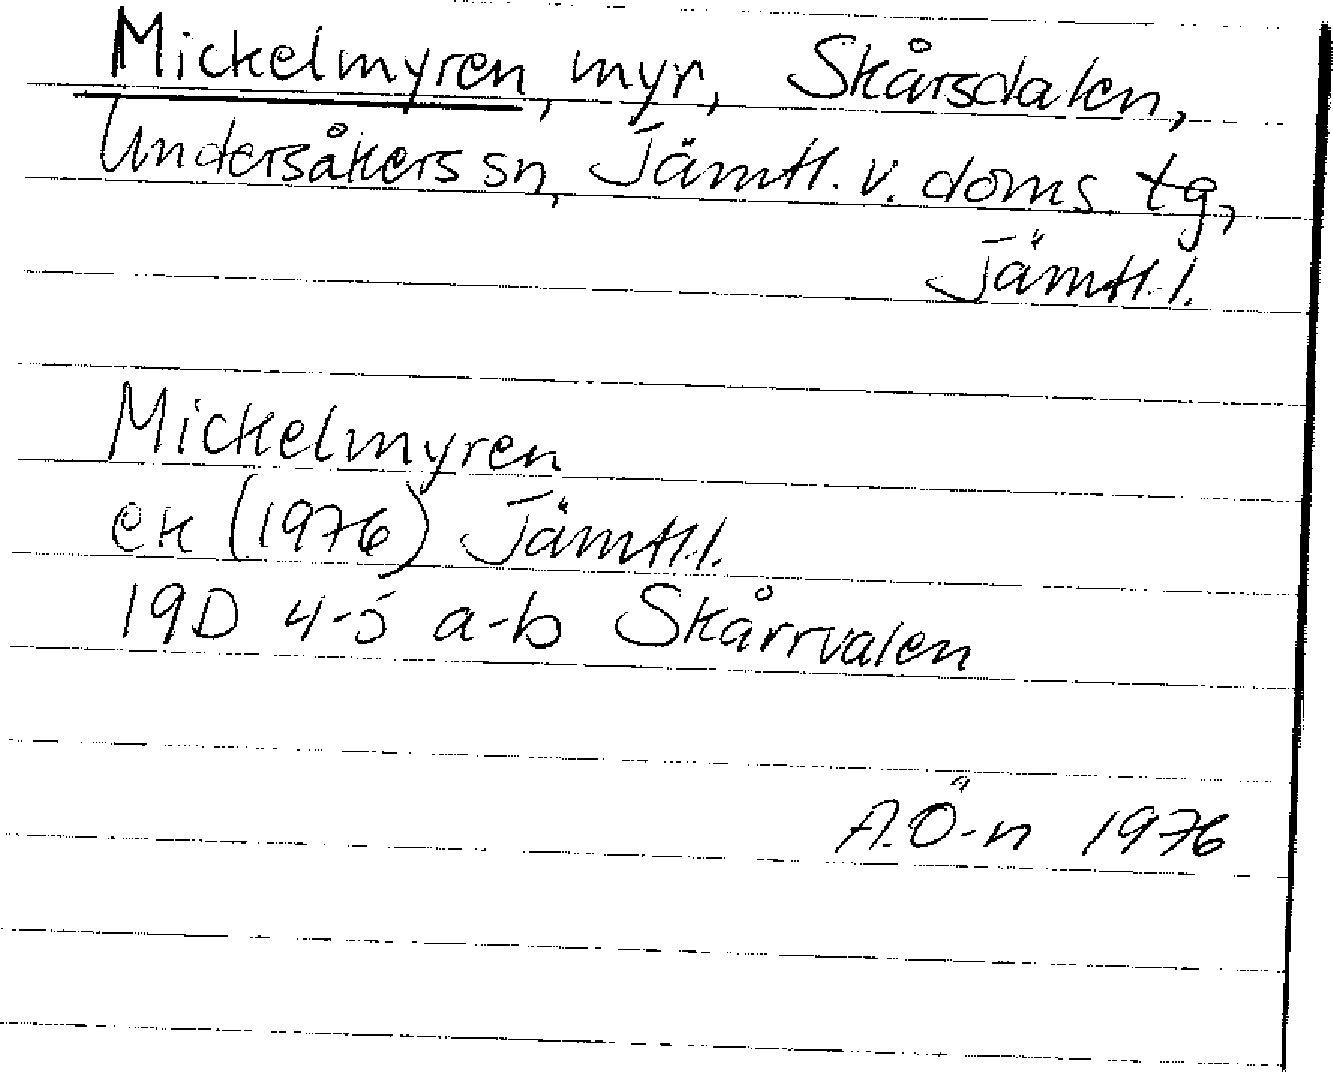 Mickelmyren, myr, Skårsdalen,
Undersåkers sn, Jämtl. v. doms. tg,
Jämtl. l.
Mickelmyren
ek (1976) Jämtl. l.
19D 4-5 a-b Skårrvalen
A.Ö-n 1976